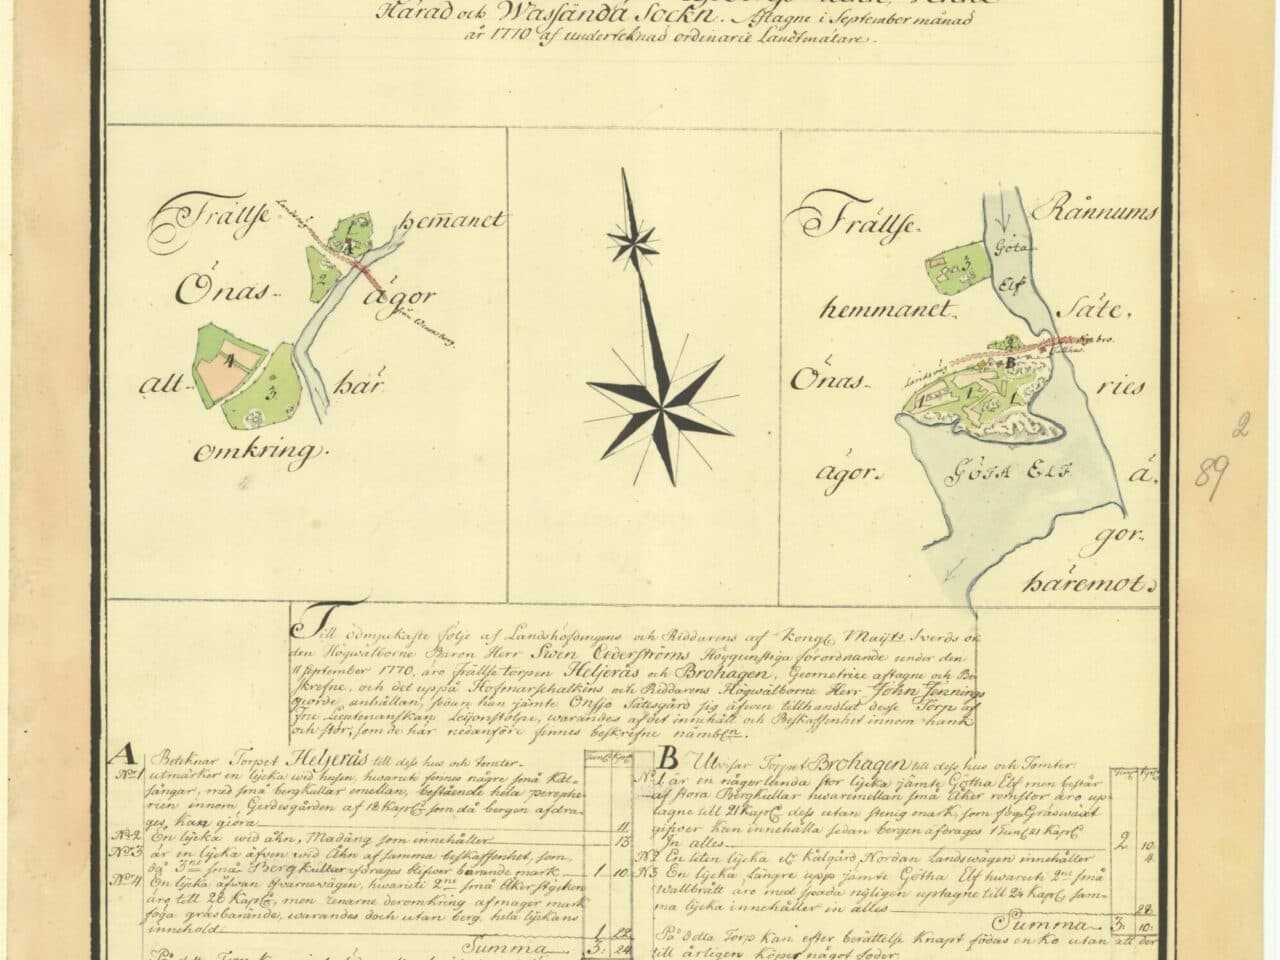 Härad och Wassända Sockn. Aftagne i September månad
år 1770 af underteknad ordinarie Landtmätare.
Frällse hem̄anet
Landswäg
1
A
2
Önas- ägor
från Wenersborg.
4
3
alt- här
omkring.
Frällse- Rånnums
Göta
3
Elf
hemmanet Säte,
2
bro.
B
Landswäg
Önas- ries
1 1 1
ägor. GÖTA ELF. á,
gor-
häremot.
2
89
Till ödmjukaste följe af Landshöfdingens och Riddarens af Kongl Maijts Swerds or
den Högwälborne Baron Herr Swen Cederströms Höggunstiga förordnande under den
11 September 1770, äro Frällse torpen Heljerås och Brohagen, Geometrice aftagne och Be-
skrefne, och det uppå Hofmarschalkens och Riddarens Högwälborne Herr John Jennings
giorde anhållan, sedan han jämte Onsjö Sätesgård sig äfwen tillhandlat desse Torp af
Fru Lieutenanskan Leijonstolpe, warandes af det innehåll och Beskaffenhet innom hank
och stör, som de här nedanföre finnes beskrefne nämbln.
A Beteknar Torpet Heljerås till dess hus och tomter-
No 1 utmärker en lycka wid husen, hwaruti finnes någre små Kål-
sängar, med små bergkullar emellan, bestående hela periphe-
rien innom Gerdesgården af 18 Kapl. som då bergen afdra-
ges, kan giöra 11
No 2 En lycka wid åhn, Madäng som innehåller 13
No 3 är en lycka äfwen wid Åhn af samma beskaffenhet, som
då 3ne små Bergkullar afdrages blefwer bärande mark 1 10
No 4 En lycka äfwan ofwanwägen, hwaruti 2ne små Åkerstycken
äro till 28 Kapl. men renarne deromkring af mager mark
föga gräsbärande, warandes doch utan berg, hela lyckans
innehold 1 22
Summa 3: 24
B Utwisar Torpet Brohagen till dess hus och Tomter.
No 1 är en någorlunda stor lycka jämte Götha Elf men består
af stora Bergkullar hwaremellan små Åker remsor äro up-
tagne till 21 Kapl. dess utan stenig mark, som föga Gräswäxt
gifwer kan innehålla sedan bergen afdrages 1 tunl 21 Kapl.
In alles 2 10
No 2 En liten lycka et Kålgård, Nordan Landswägen innehåller 4
No 3 En lycka längre upp jämte Götha Elf hwaruti 2ne små
Wallbrått äro med spada nyligen uptagne till 24 Kapl. sam-
ma lycka innehåller in alles 28
Summa 3: 10
På detta Torp kan efter berättelse knapt födas en ko utan att der
till årligen köpes något foder.